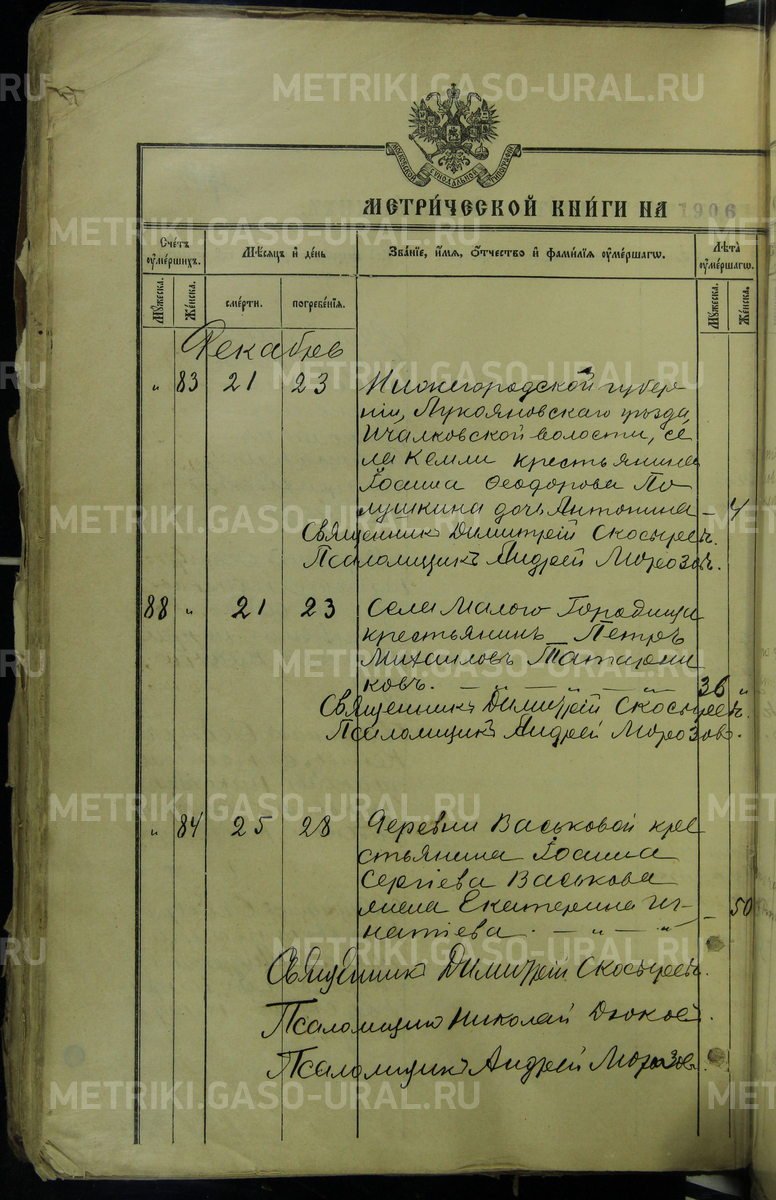 МЕТРИ́ЧЕСКОЙ КНИ́ГИ НА 1906
Сче́тъ ѹме́ршихъ.
Мѣ́сяцъ и҆ де́нь
Зва́нїе, и҆́мѧ, ѻ҆́тчество и҆ фами́лїѧ ѹме́ршагѡ.
Лѣта̀ ѹме́ршагѡ.
Мꙋ́жеска.
Же́нска.
сме́рти.
погребе́нїѧ.
Мꙋ́жеска.
Же́нска.
Декабрь
" 83 21 23 Нижегородской губер-
нiи, Лукояновскаго уѣзда,
Ичалковской волости, се-
ла Кемли крестьянина
Іоанна Ѳеодорова По-
лушкина дочь Антонина – 4
Священникъ Димитрій Скосыревъ.
Псаломщикъ Андрей Морозовъ.
88 " 21 23 Села Малого Городища
крестьянинъ Петръ
Михаиловъ Татарни
ковъ. — " — " — " — 36 "
Священникъ Димитрій Скосыревъ.
Псаломщикъ Андрей Морозовъ.
" 84 25 28 Деревни Васьковой кре
стьянина Іоанна
Сергіева Васькова
жена Екатерина Иг-
натіева. — " — " – 50
Священникъ Димитрій Скосыревъ.
Псаломщикъ Николай
Псаломщикъ Андрей Морозовъ.
METRIKI.GASO-URAL.RU